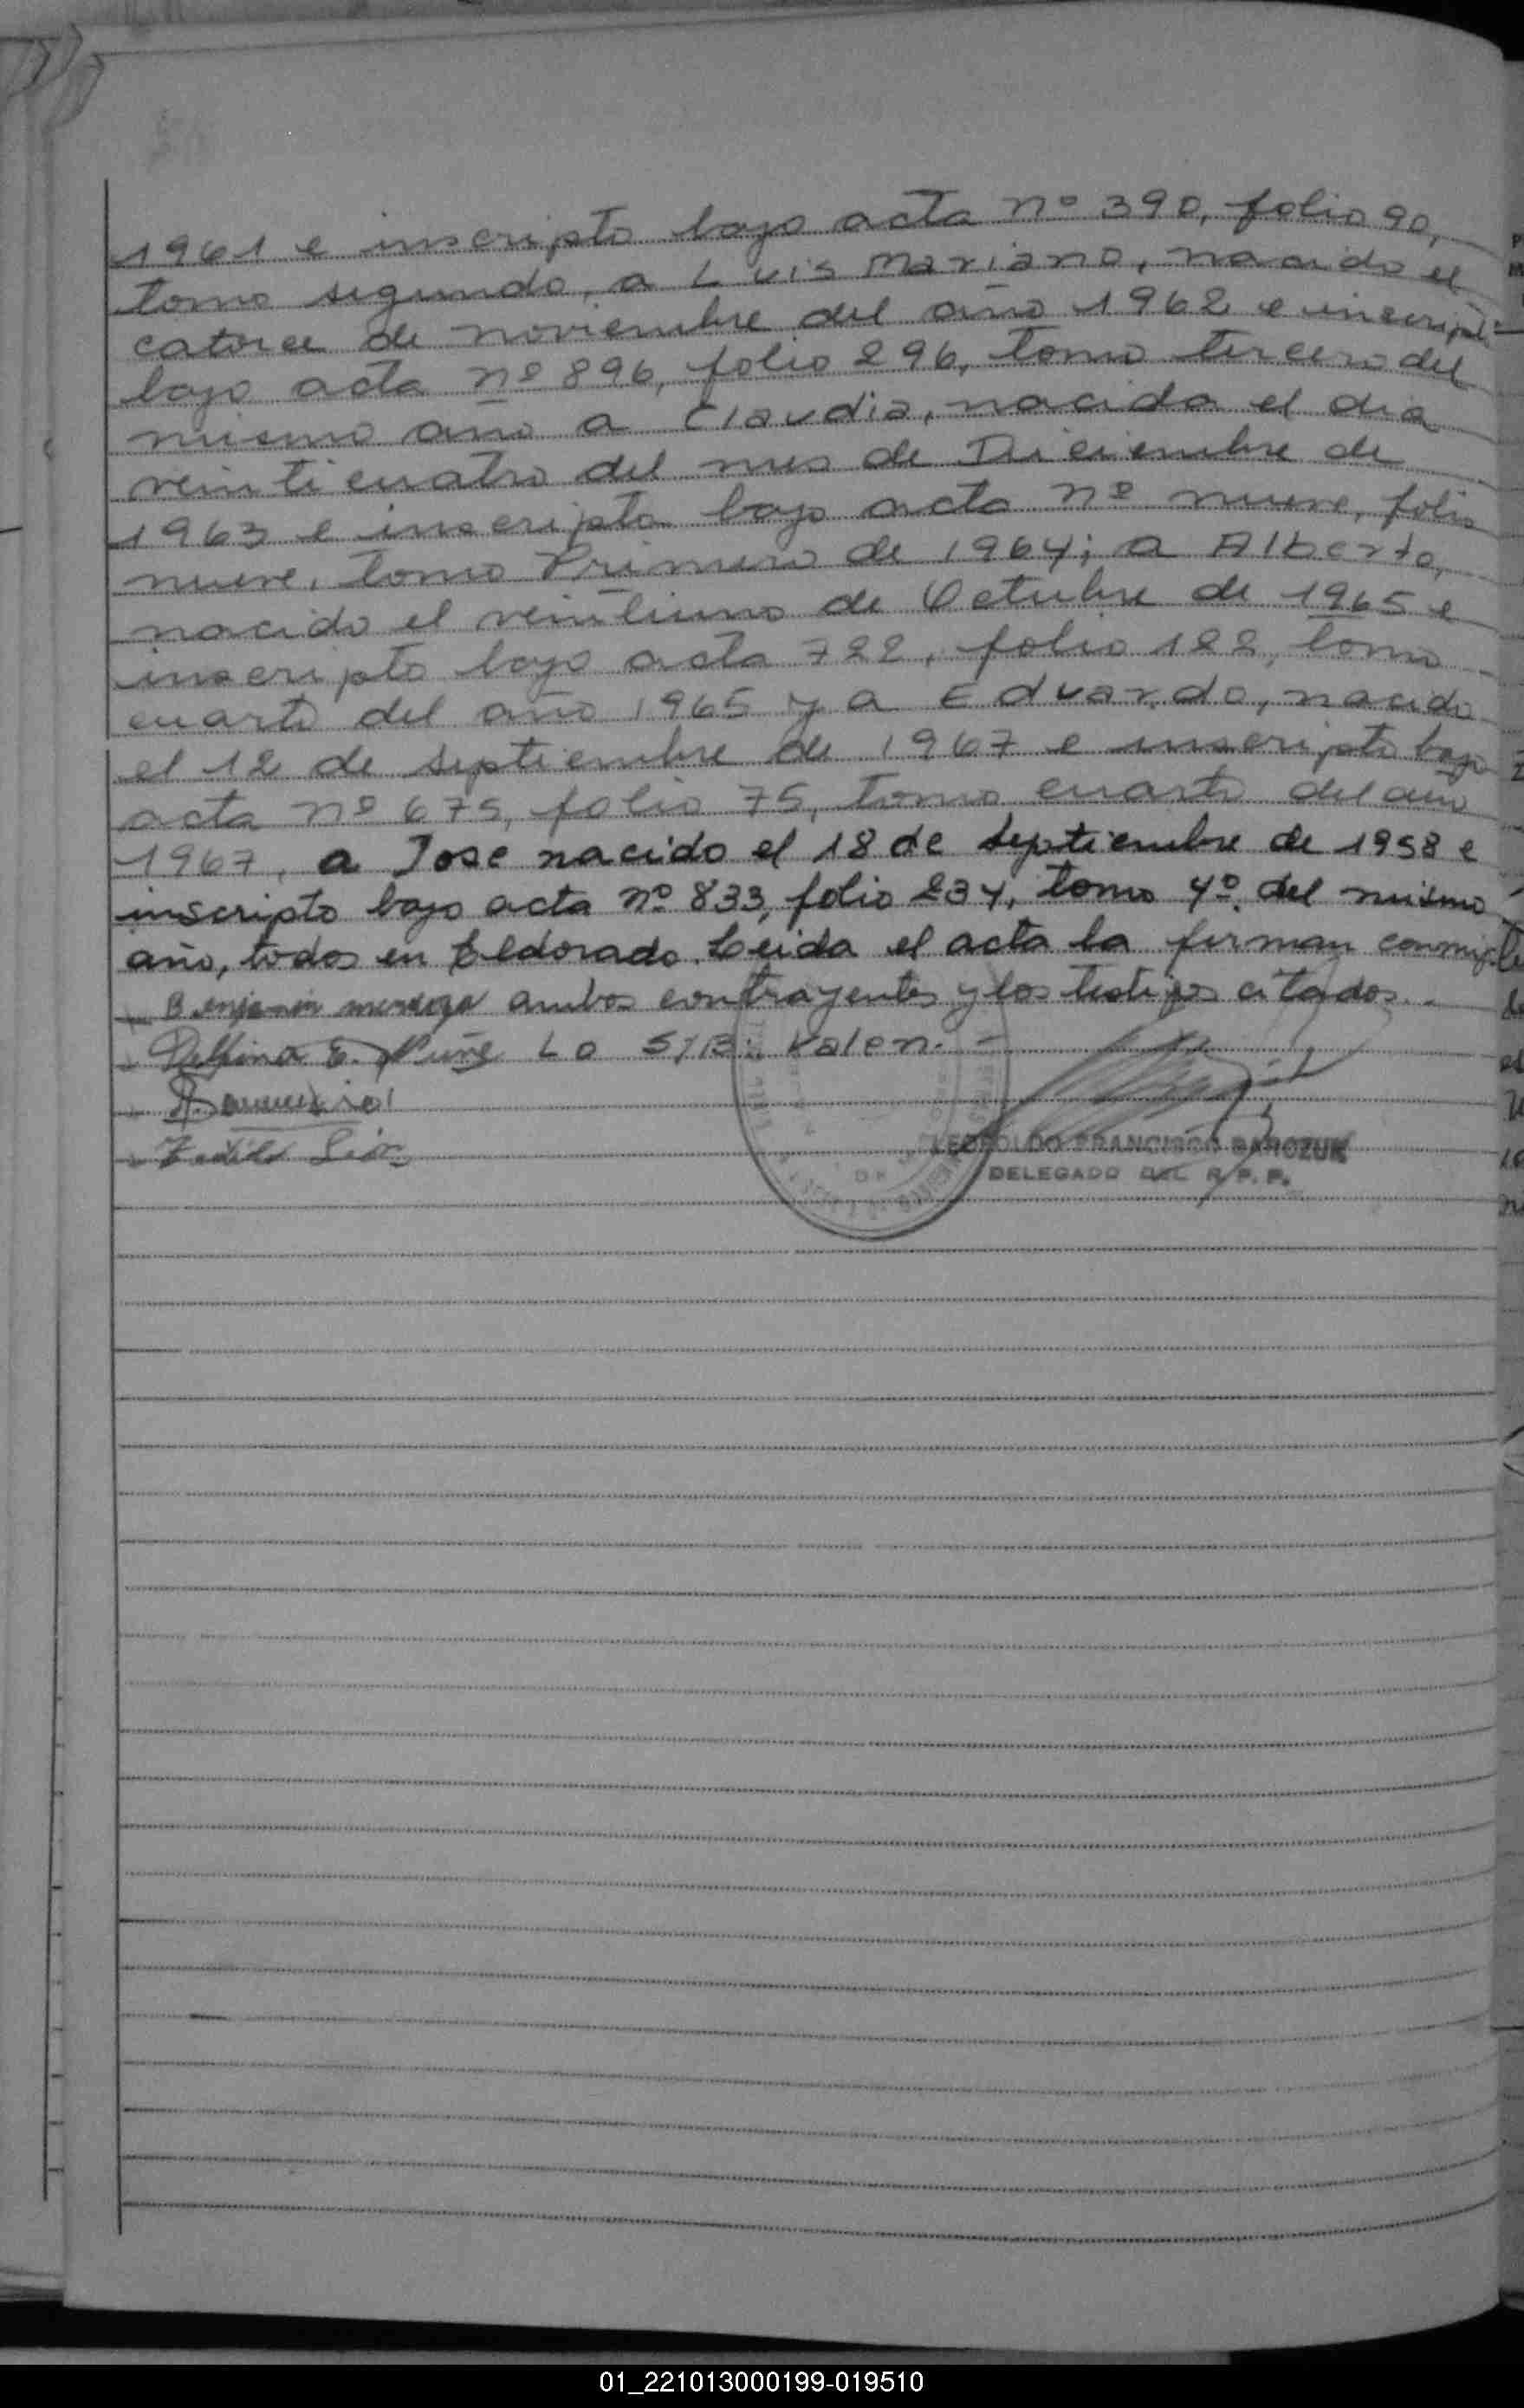 1961 e inscripto bajo acta nº 390, folio 90,
tomo segundo, a Luis Mariano, nacido el
catorce de noviembre del año 1962 e inscripto
bajo acta nº 896, folio 296, tomo tercero del
mismo año a Claudia, nacida el dia
veinticuatro del mes de Diciembre de
1963 e inscripta bajo acta nº nueve, folio
nueve, tomo Primero de 1964; a Alberto,
nacido el veintiuno de Octubre de 1965 e
inscripto bajo acta 722, folio 122, tomo
cuarto del año 1965 y a Eduardo, nacido
el 12 de septiembre de 1967 e inscripto bajo
acta nº 675, folio 75, tomo cuarto del año
1967, a Jose nacido el 18 de septiembre de 1958 e
inscripto bajo acta nº 833, folio 234, tomo 4º del mismo
año, todos en Eldorado. Leida el acta la firman conmigo
Benjamin ambos contrayentes y los testigos citados.
Delfina E. Lo S/B: Valen.
LEOPOLDO FRANCISCO BARCZUK
DELEGADO DEL R.P.P.
01_221013000199-019510